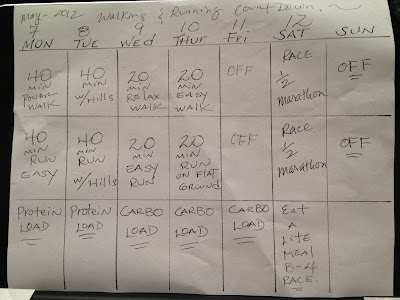 May-2012 Walking & Running Count Down
7 8 9 10 11 12
MON TUE WED THUR Fri SAT SUN
40 MIN POWER WALK
40 MIN W/Hills
20 MIN RELAX WALK
20 MIN EASY WALK
OFF
RACE 1/2 marathon
OFF
40 MIN RUN EASY
40 MIN RUN W/Hills
20 MIN EASY RUN
20 MIN RUN ON FLAT GROUND
OFF
Race 1/2 marathon
OFF
Protein LOAD
Protein LOAD
CARBO LOAD
CARBO LOAD
CARBO LOAD
Eat A Lite MEAL B-4 RACE